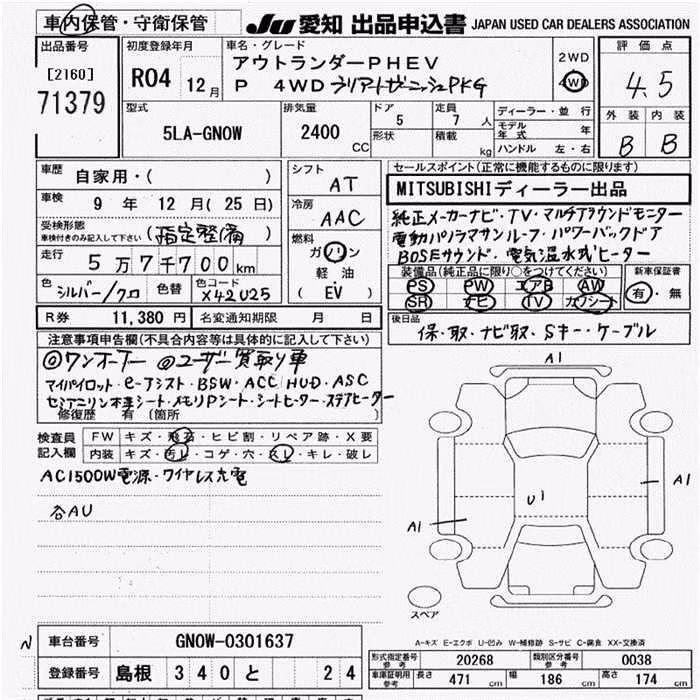 車内保管・守衛保管
JU 愛知 出品申込書 JAPAN USED CAR DEALERS ASSOCIATION
出品番号
[2160]
71379
初度登録年月
R04 12月
車名・グレード
アウトランダーPHEV
P 4WD
2WD
4WD
評価点
4.5
外装 内装
B B
型式
5LA-GN0W
排気量
2400 CC
ドア
5
形状
定員
7 人
積載
kg
ディーラー・並行
モデル年式 年
ハンドル 左・右
車歴 自家用・( )
車検 9年 12月(25日)
受検形態 (指定整備)
車検付きのみ記入して下さい
走行 5万7千700km
色 シルバー/クロ 色替 色コード X42U25
シフト
AT
冷房
AAC
燃料
ガソリン
軽油
(EV)
R券 11,380円 名変通知期限 月 日
セールスポイント(正常に機能するものに限ります)
MITSUBISHIディーラー出品
純正メーカーナビ・TV・マルチアラウンドモニター
電動パノラマサンルーフ・パワーバックドア
BOSEサウンド・電気温水式ヒーター
装備品(純正品に限り○をつけてください)
PS PW エアB AW
SR ナビ TV カワシート
新車保証書
有・無
後日品
保・取・ナビ取・Sキー・ケーブル
注意事項申告欄(不具合内容等は具体的に記入して下さい)
◎ワンオーナー ◎ユーザー買取り車
マイパイロット・e-アシスト・BSW・ACC/HUD・ASC
セミアニリン本革シート・メモリPシート・シートヒーター・ステアヒーター
修復歴 有(箇所
検査員記入欄
FW キズ・飛石・ヒビ割・リペア跡・X要
内装 キズ・汚レ・コゲ・穴・スレ・キレ・破レ
AC1500W電源・ワイヤレス充電
各AU
A1
A1
U1
A1
スペア
A-キズ E-エクボ U-凹み W-補修跡 S-サビ C-腐食 XX-交換済
N
車台番号 GN0W-0301637
登録番号 島根 340 と 24
形式指定番号 参考 20268 類別区分番号 参考 0038
車庫証明用 参考 長さ 471 cm 幅 186 cm 高さ 174 cm